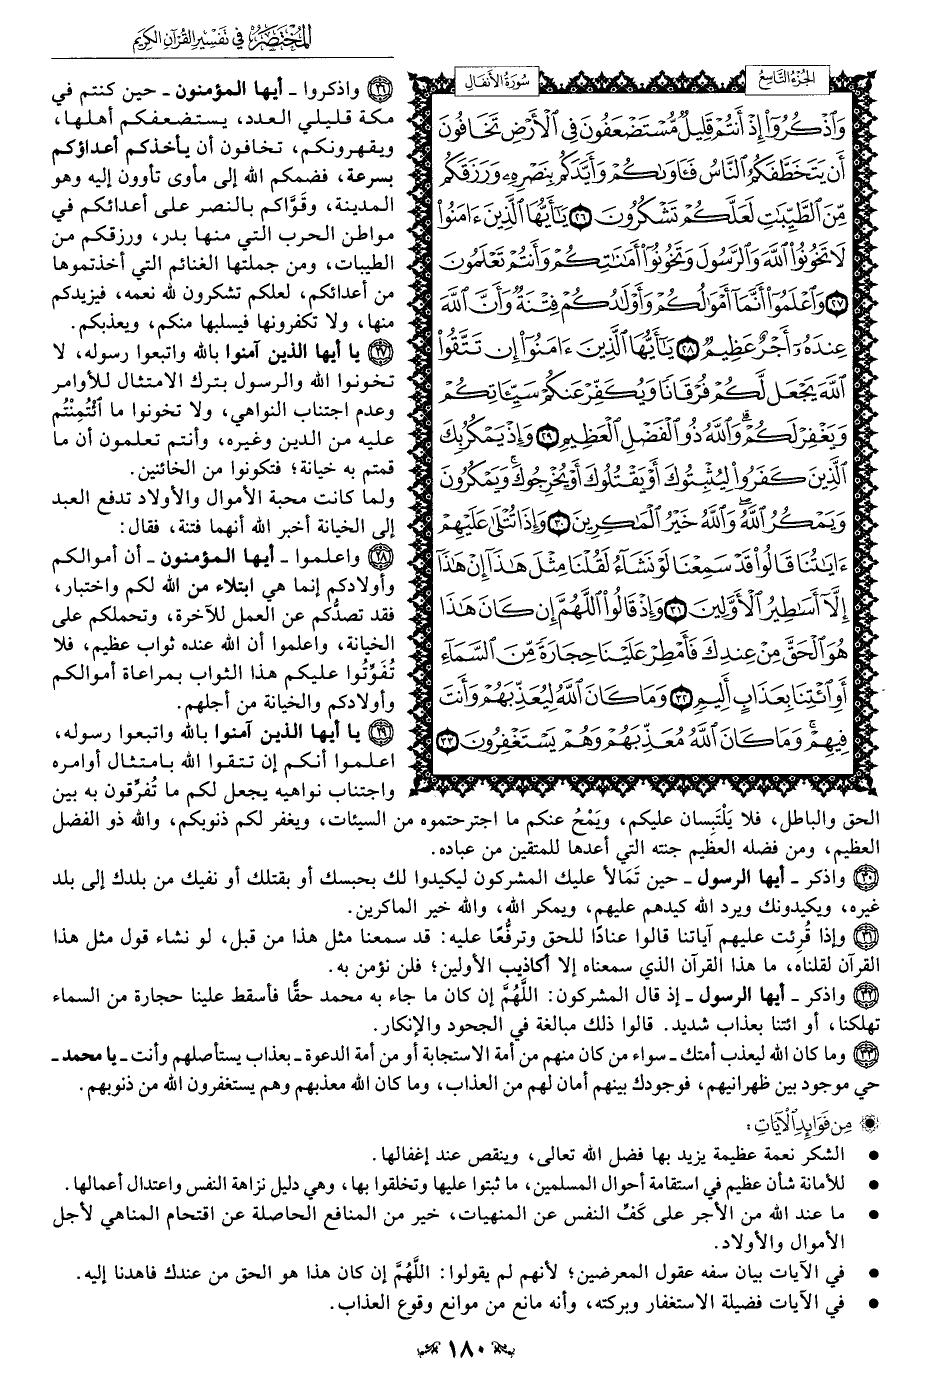 المختصر في تفسير القرآن الكريم
الجزء التاسع
سورة الأنفال
وَاذْكُرُوا إِذْ أَنتُمْ قَلِيلٌ مُّسْتَضْعَفُونَ فِي الْأَرْضِ تَخَافُونَ
أَن يَتَخَطَّفَكُمُ النَّاسُ فَـَٔاوَىٰكُمْ وَأَيَّدَكُم بِنَصْرِهِۦ وَرَزَقَكُم
مِّنَ الطَّيِّبَٰتِ لَعَلَّكُمْ تَشْكُرُونَ ٢٦ يَٰٓأَيُّهَا الَّذِينَ ءَامَنُوا
لَا تَخُونُوا اللَّهَ وَالرَّسُولَ وَتَخُونُوٓا أَمَٰنَٰتِكُمْ وَأَنتُمْ تَعْلَمُونَ
٢٧ وَاعْلَمُوٓا أَنَّمَآ أَمْوَٰلُكُمْ وَأَوْلَٰدُكُمْ فِتْنَةٌ وَأَنَّ اللَّهَ
عِندَهُۥٓ أَجْرٌ عَظِيمٌ ٢٨ يَٰٓأَيُّهَا الَّذِينَ ءَامَنُوٓا إِن تَتَّقُوا
اللَّهَ يَجْعَل لَّكُمْ فُرْقَانًا وَيُكَفِّرْ عَنكُمْ سَيِّـَٔاتِكُمْ
وَيَغْفِرْ لَكُمْ ۗ وَاللَّهُ ذُو الْفَضْلِ الْعَظِيمِ ٢٩ وَإِذْ يَمْكُرُ بِكَ
الَّذِينَ كَفَرُوا لِيُثْبِتُوكَ أَوْ يَقْتُلُوكَ أَوْ يُخْرِجُوكَ ۚ وَيَمْكُرُونَ
وَيَمْكُرُ اللَّهُ ۖ وَاللَّهُ خَيْرُ الْمَٰكِرِينَ ٣٠ وَإِذَا تُتْلَىٰ عَلَيْهِمْ
ءَايَٰتُنَا قَالُوا قَدْ سَمِعْنَا لَوْ نَشَآءُ لَقُلْنَا مِثْلَ هَٰذَآ إِنْ هَٰذَآ
إِلَّآ أَسَٰطِيرُ الْأَوَّلِينَ ٣١ وَإِذْ قَالُوا اللَّهُمَّ إِن كَانَ هَٰذَا
هُوَ الْحَقَّ مِنْ عِندِكَ فَأَمْطِرْ عَلَيْنَا حِجَارَةً مِّنَ السَّمَآءِ
أَوِ ائْتِنَا بِعَذَابٍ أَلِيمٍ ٣٢ وَمَا كَانَ اللَّهُ لِيُعَذِّبَهُمْ وَأَنتَ
فِيهِمْ ۚ وَمَا كَانَ اللَّهُ مُعَذِّبَهُمْ وَهُمْ يَسْتَغْفِرُونَ ٣٣
٢٦ واذكروا ـ أيها المؤمنون ـ حين كنتم في
مكة قليلي العدد، يستضعفكم أهلها،
ويقهرونكم، تخافون أن يأخذكم أعداؤكم
بسرعة، فضمكم الله إلى مأوى تأوون إليه وهو
المدينة، وقَوَّاكم بالنصر على أعدائكم في
مواطن الحرب التي منها بدر، ورزقكم من
الطيبات، ومن جملتها الغنائم التي أخذتموها
من أعدائكم، لعلكم تشكرون لله نعمه، فيزيدكم
منها، ولا تكفرونها فيسلبها منكم، ويعذبكم.
٢٧ يا أيها الذين آمنوا بالله واتبعوا رسوله، لا
تخونوا الله والرسول بترك الامتثال للأوامر
وعدم اجتناب النواهي، ولا تخونوا ما ائْتُمِنْتُم
عليه من الدين وغيره، وأنتم تعلمون أن ما
قمتم به خيانة؛ فتكونوا من الخائنين.
ولما كانت محبة الأموال والأولاد تدفع العبد
إلى الخيانة أخبر الله أنهما فتنة، فقال:
٢٨ واعلموا ـ أيها المؤمنون ـ أن أموالكم
وأولادكم إنما هي ابتلاء من الله لكم واختبار،
فقد تصدُّكم عن العمل للآخرة، وتحملكم على
الخيانة، واعلموا أن الله عنده ثواب عظيم، فلا
تُفَوِّتُوا عليكم هذا الثواب بمراعاة أموالكم
وأولادكم والخيانة من أجلهم.
٢٩ يا أيها الذين آمنوا بالله واتبعوا رسوله،
اعلموا أنكم إن تتقوا الله بامتثال أوامره
واجتناب نواهيه يجعل لكم ما تُفرِّقون به بين
الحق والباطل، فلا يَلْتَبِسان عليكم، ويَمْحُ عنكم ما اجترحتموه من السيئات، ويغفر لكم ذنوبكم، والله ذو الفضل
العظيم، ومن فضله العظيم جنته التي أعدها للمتقين من عباده.
٣٠ واذكر ـ أيها الرسول ـ حين تَمَالأ عليك المشركون ليكيدوا لك بحبسك أو بقتلك أو نفيك من بلدك إلى بلد
غيره، ويكيدونك ويرد الله كيدهم عليهم، ويمكر الله، والله خير الماكرين.
٣١ وإذا قُرِئت عليهم آياتنا قالوا عنادًا للحق وترفُّعًا عليه: قد سمعنا مثل هذا من قبل، لو نشاء قول مثل هذا
القرآن لقلناه، ما هذا القرآن الذي سمعناه إلا أكاذيب الأولين؛ فلن نؤمن به.
٣٢ واذكر ـ أيها الرسول ـ إذ قال المشركون: اللَّهُمَّ إن كان ما جاء به محمد حقًّا فأسقط علينا حجارة من السماء
تهلكنا، أو ائتنا بعذاب شديد. قالوا ذلك مبالغة في الجحود والإنكار.
٣٣ وما كان الله ليعذب أمتك ـ سواء من كان منهم من أمة الاستجابة أو من أمة الدعوة ـ بعذاب يستأصلهم وأنت ـ يا محمد ـ
حي موجود بين ظهرانيهم، فوجودك بينهم أمان لهم من العذاب، وما كان الله معذبهم وهم يستغفرون الله من ذنوبهم.
من فوائد الآيات:
• الشكر نعمة عظيمة يزيد بها فضل الله تعالى، وينقص عند إغفالها.
• للأمانة شأن عظيم في استقامة أحوال المسلمين، ما ثبتوا عليها وتخلقوا بها، وهي دليل نزاهة النفس واعتدال أعمالها.
• ما عند الله من الأجر على كَفِّ النفس عن المنهيات، خير من المنافع الحاصلة عن اقتحام المناهي لأجل
الأموال والأولاد.
• في الآيات بيان سفه عقول المعرضين؛ لأنهم لم يقولوا: اللَّهُمَّ إن كان هذا هو الحق من عندك فاهدنا إليه.
• في الآيات فضيلة الاستغفار وبركته، وأنه مانع من موانع وقوع العذاب.
١٨٠